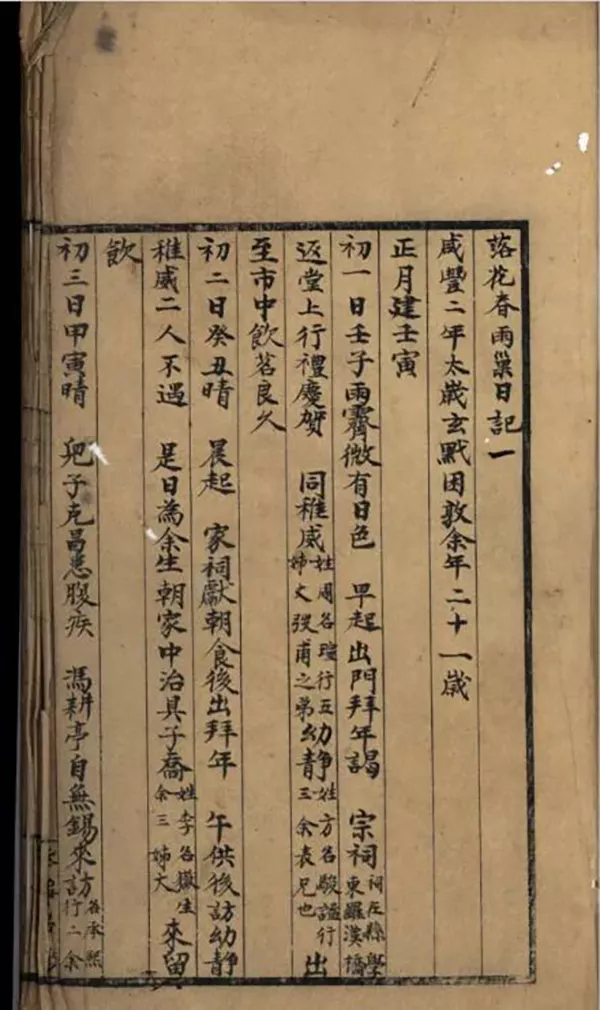 落花春雨巢日記一
咸豐二年太歲玄黓困敦余年二十一歲
正月建壬寅
初一日壬子雨霽微有日色 早起出門拜年謁 宗祠 祠在縣學東羅漢橋
返堂上行禮慶賀 同稚威 姓周名行五姊丈弢甫之弟 幼靜 姓方名駿謨行三余表兄也 出
至市中飲茗良久
初二日癸丑晴 晨起 家祠獻朝食後出拜年 午供後訪幼靜
稚威二人不遇 是日為余生朝家中治具子喬 姓李名嶽生余三姊丈 來留
飲
初三日甲寅晴 兒子克昌患腹疾 馮耕亭自無錫來訪 名承熙行二余